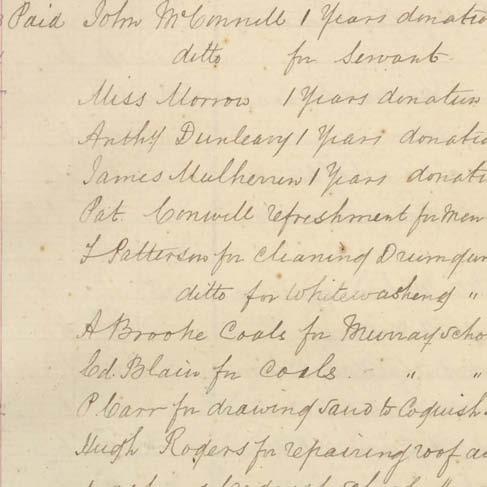 Paid John McConnell 1 Years donation
ditto for Servant
Miss Morrow 1 Years donation
Anthy Dunleavy 1 Years donatio
James Mulherren 1 Years donati
Pat Conwill refreshment for Men
T Patterson for cleaning Drumgun
ditto for Whitewashing "
A Brooke Coals for Murray Scho
Ed. Blain for Coals " "
P Carr for drawing sand to Coguish
Hugh Rogers for repairing roof